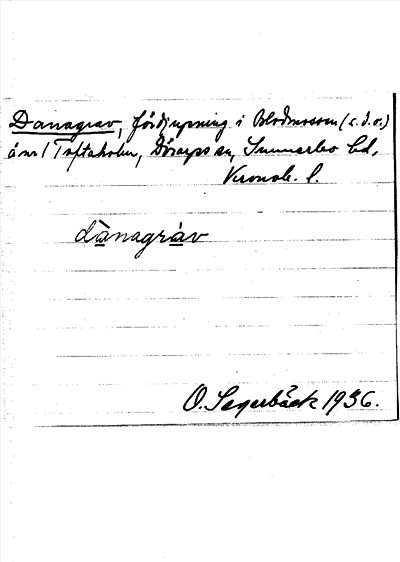 Danagrav, fördjupning i Blodmossen (s.d.o.)
å nr 1 Toftaholm, Dörarps sn, Sunnerbo hd,
Kronob. l.
dànagràv
O. Segerbäck 1936.